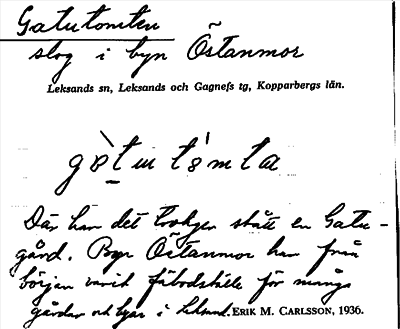 Gatutomten
slog i byn Östanmor
Leksands sn, Leksands och Gagnefs tg, Kopparbergs län.
gàtu tòmta
Där har det troligen stått en Gatu-
gård. Byn Östanmor har från
början varit fäbodställe för många
gårdar och byar i Leksand. ERIK M. CARLSSON, 1936.